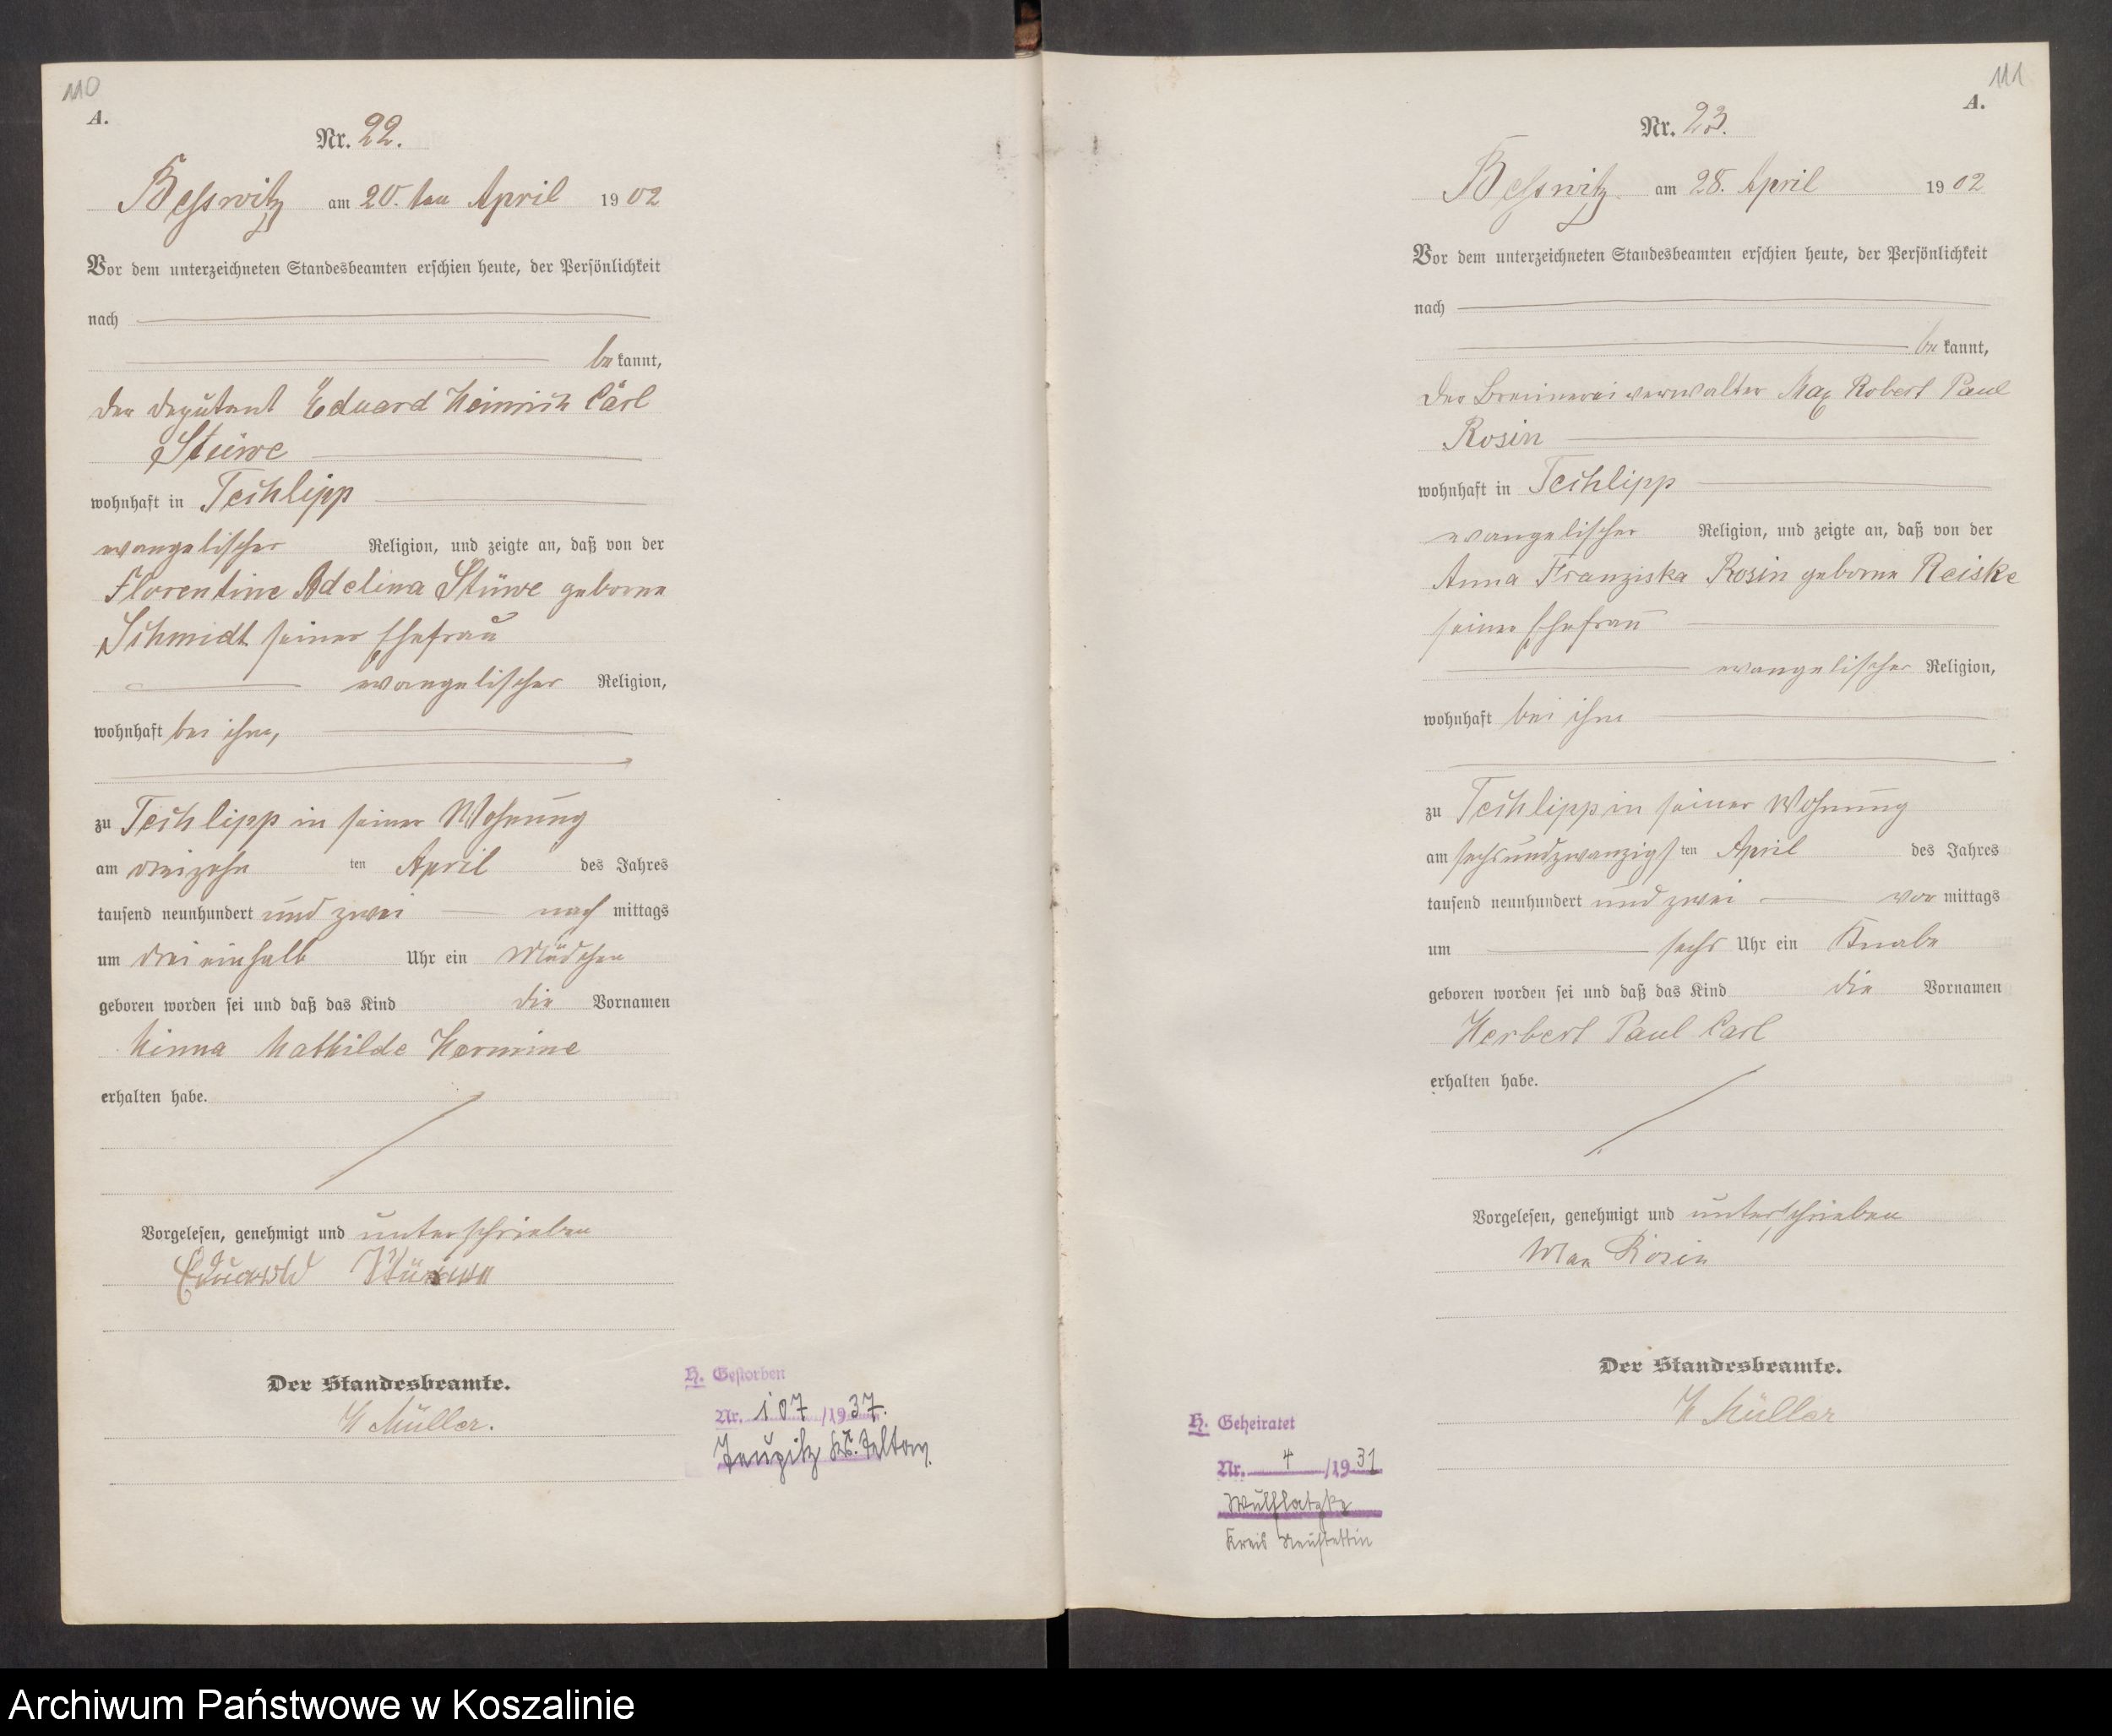 110
A.
Nr. 22.
Besswitz am 20. ten April 1902
Vor dem unterzeichneten Standesbeamten erschien heute, der Persönlichkeit
nach
be kannt,
der Deputant Eduard Heinrich Carl
Stüwe
wohnhaft in Techlipp
evangelischer Religion, und zeigte an, daß von der
Florentine Adelina Stüwe geborne
Schmidt seiner Ehefrau
evangelischer Religion,
wohnhaft bei ihm,
zu Techlipp in seiner Wohnung
am dreizehn ten April des Jahres
tausend neunhundert und zwei nach mittags
um drei einhalb Uhr ein Mädchen
geboren worden sei und daß das Kind die Vornamen
Minna Mathilde Hermine
erhalten habe.
Vorgelesen, genehmigt und unterschrieben
Eduard Stüwe
Der Standesbeamte.
H Müller.
H. Gestorben
Nr. 107 /1937.
Teupitz Kr. Teltow.
111
A.
Nr. 23.
Besswitz am 28. April 1902
Vor dem unterzeichneten Standesbeamten erschien heute, der Persönlichkeit
nach
be kannt,
der Brennereiverwalter Max Robert Paul
Rosin
wohnhaft in Techlipp
evangelischer Religion, und zeigte an, daß von der
Anna Franziska Rosin geborne Reiske
seiner Ehefrau
evangelischer Religion,
wohnhaft bei ihm
zu Techlipp in seiner Wohnung
am sechsundzwanzigs ten April des Jahres
tausend neunhundert und zwei vor mittags
um sechs Uhr ein Knabe
geboren worden sei und daß das Kind die Vornamen
Herbert Paul Carl
erhalten habe.
Vorgelesen, genehmigt und unterschrieben
Max Rosin
Der Standesbeamte.
H Müller
H. Geheiratet
Nr. 4 /1931
Wulflatzke
Kreis Neustettin
Archiwum Państwowe w Koszalinie